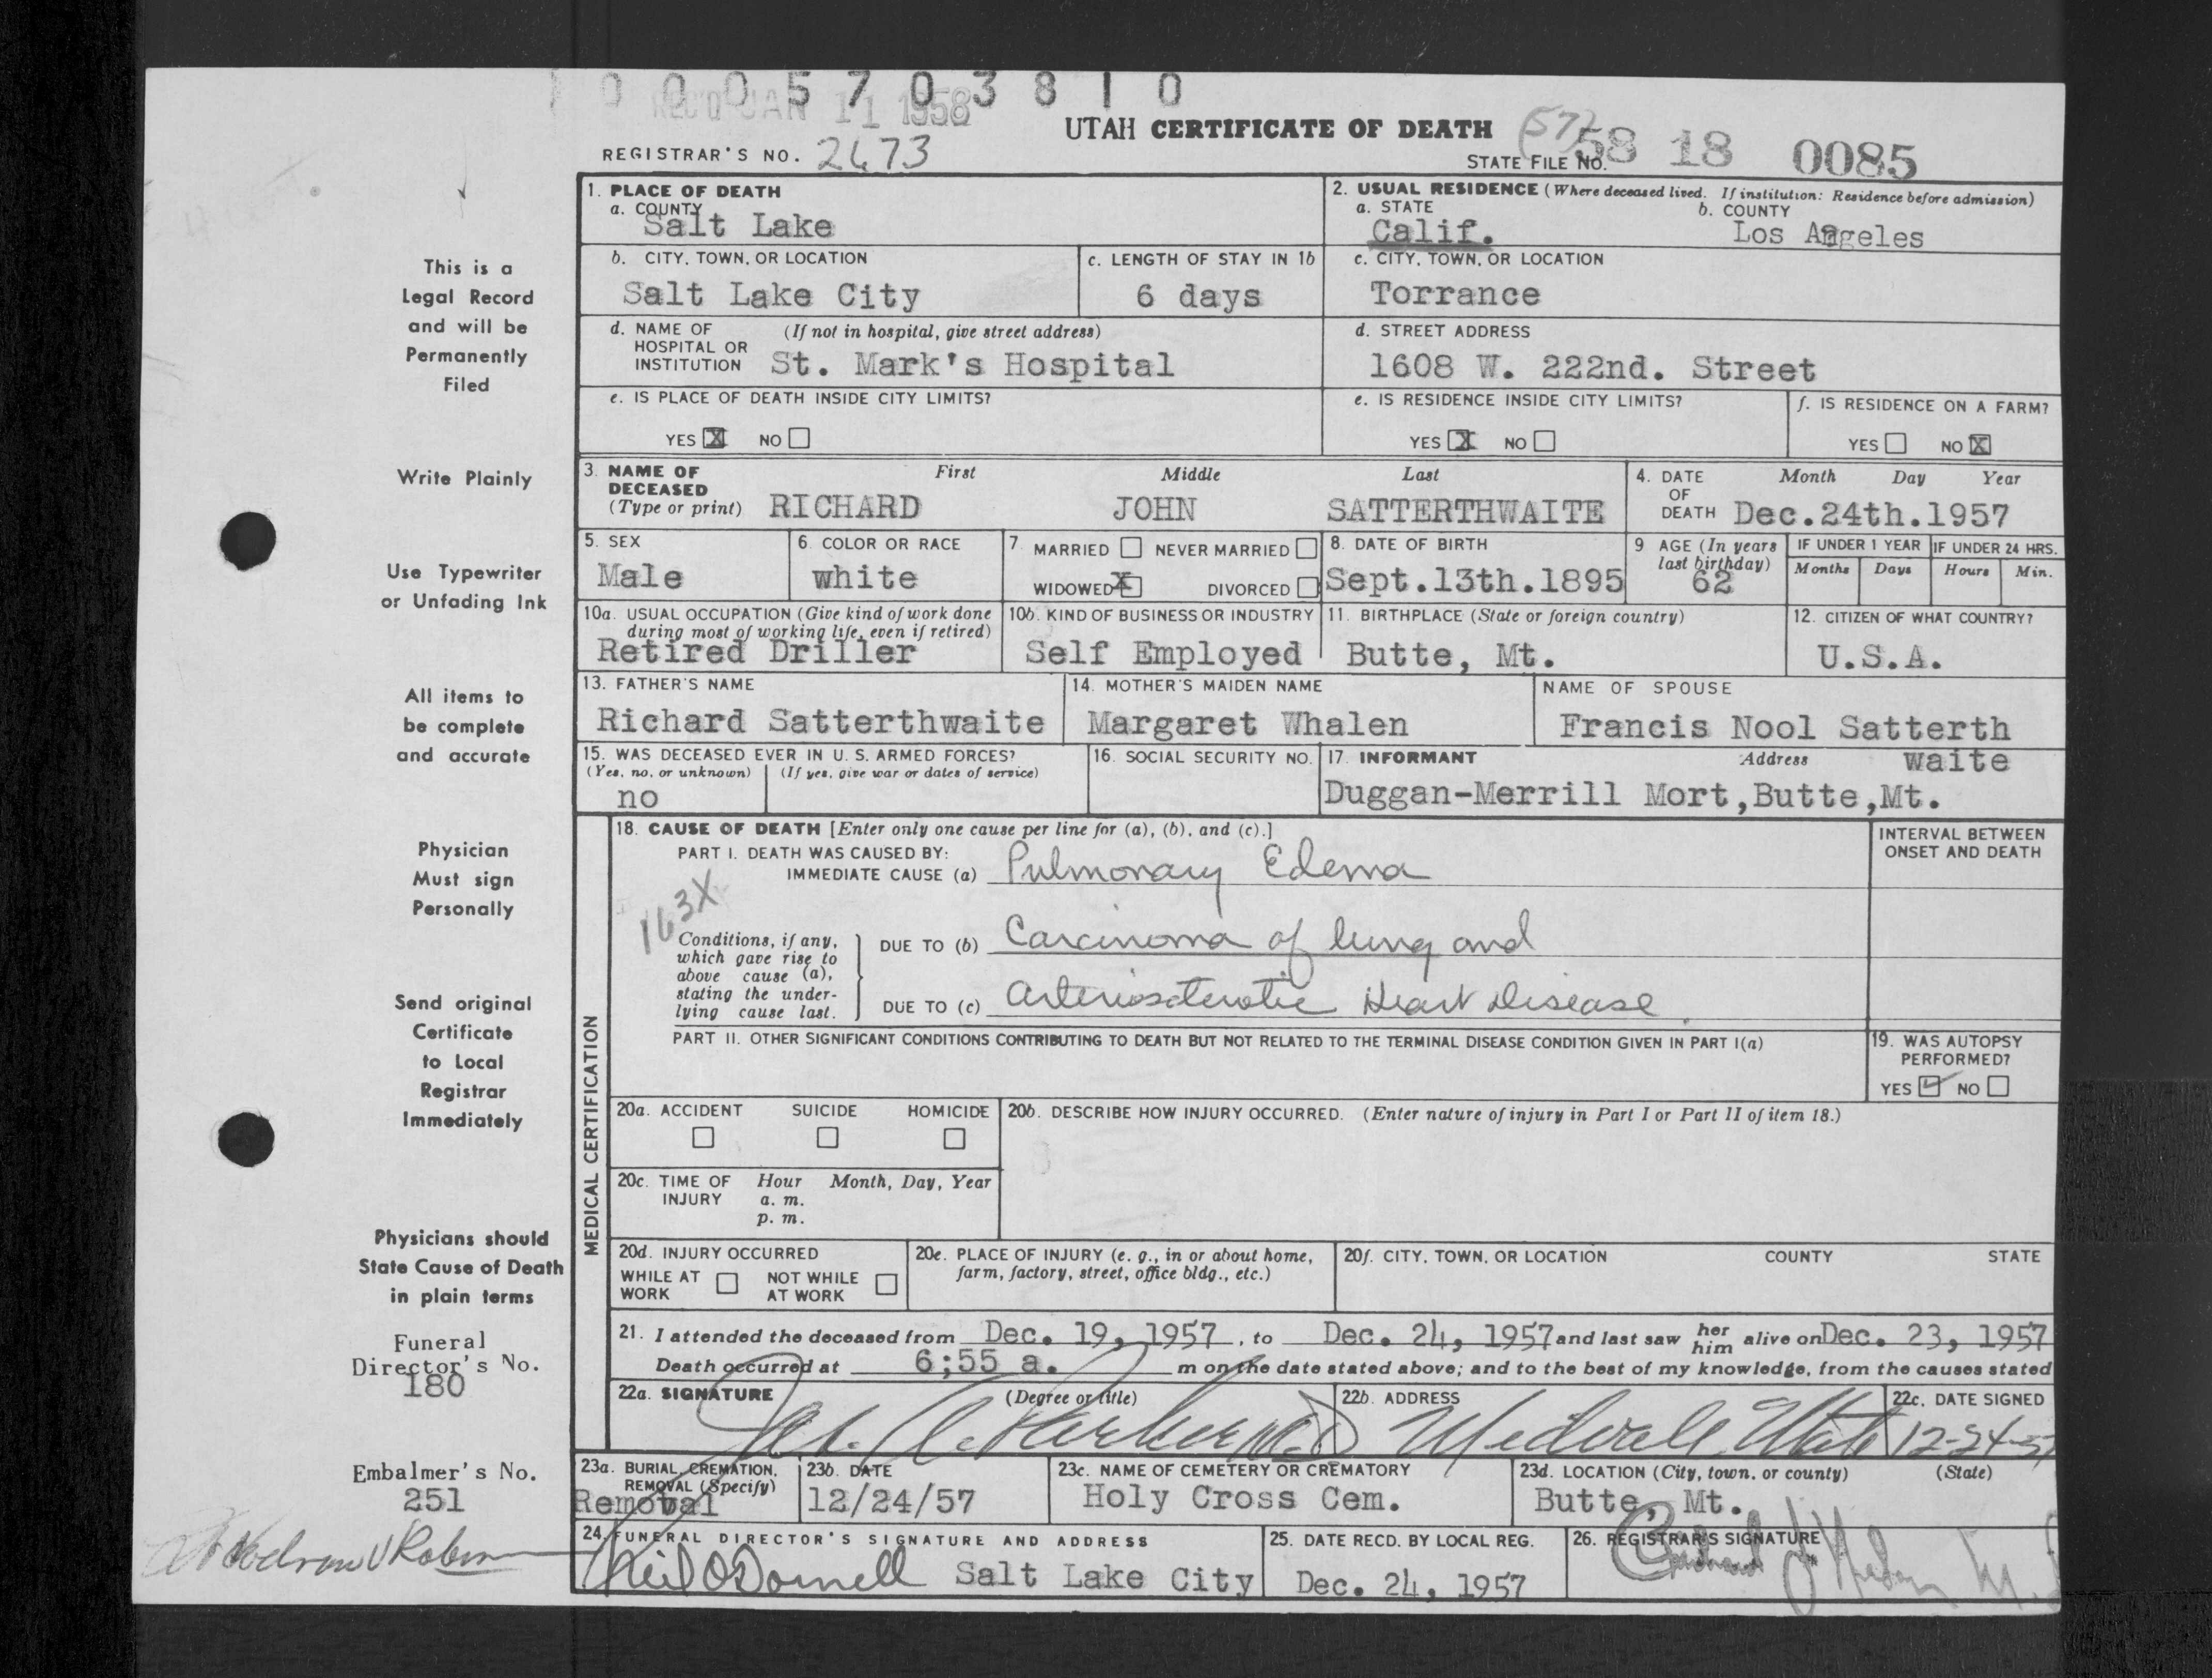 1 0 0 0 5 7 0 3 8 1 0
REC'D JAN 11 1958
UTAH CERTIFICATE OF DEATH
REGISTRAR'S NO. 2473
STATE FILE NO. (57) 58 18 0085
This is a
Legal Record
and will be
Permanently
Filed
Write Plainly
Use Typewriter
or Unfading Ink
All items to
be complete
and accurate
Physician
Must sign
Personally
Send original
Certificate
to Local
Registrar
Immediately
Physicians should
State Cause of Death
in plain terms
Funeral
Director's No.
180
Embalmer's No.
251
1. PLACE OF DEATH
a. COUNTY
Salt Lake
2. USUAL RESIDENCE (Where deceased lived. If institution: Residence before admission)
a. STATE b. COUNTY
Calif. Los Angeles
b. CITY, TOWN, OR LOCATION
Salt Lake City
c. LENGTH OF STAY IN 1b
6 days
c. CITY, TOWN, OR LOCATION
Torrance
d. NAME OF (If not in hospital, give street address)
HOSPITAL OR
INSTITUTION St. Mark's Hospital
d. STREET ADDRESS
1608 W. 222nd. Street
e. IS PLACE OF DEATH INSIDE CITY LIMITS?
YES X NO
e. IS RESIDENCE INSIDE CITY LIMITS?
YES X NO
f. IS RESIDENCE ON A FARM?
YES NO X
3. NAME OF First Middle Last
DECEASED
(Type or print) RICHARD JOHN SATTERTHWAITE
4. DATE Month Day Year
OF
DEATH Dec.24th.1957
5. SEX
Male
6. COLOR OR RACE
white
7. MARRIED NEVER MARRIED
WIDOWED X DIVORCED
8. DATE OF BIRTH
Sept.13th.1895
9 AGE (In years
last birthday)
62
IF UNDER 1 YEAR
Months Days
IF UNDER 24 HRS.
Hours Min.
10a. USUAL OCCUPATION (Give kind of work done
during most of working life, even if retired)
Retired Driller
10b. KIND OF BUSINESS OR INDUSTRY
Self Employed
11. BIRTHPLACE (State or foreign country)
Butte, Mt.
12. CITIZEN OF WHAT COUNTRY?
U.S.A.
13. FATHER'S NAME
Richard Satterthwaite
14. MOTHER'S MAIDEN NAME
Margaret Whalen
NAME OF SPOUSE
Francis Nool Satterth
waite
15. WAS DECEASED EVER IN U. S. ARMED FORCES?
(Yes, no, or unknown) (If yes, give war or dates of service)
no
16. SOCIAL SECURITY NO.
17. INFORMANT Address
Duggan-Merrill Mort,Butte,Mt.
MEDICAL CERTIFICATION
18. CAUSE OF DEATH [Enter only one cause per line for (a), (b), and (c).]
PART I. DEATH WAS CAUSED BY:
IMMEDIATE CAUSE (a) Pulmonary Edema
INTERVAL BETWEEN
ONSET AND DEATH
163X
Conditions, if any,
which gave rise to
above cause (a),
stating the under-
lying cause last.
DUE TO (b) Carcinoma of lung and
DUE TO (c) Arteriosclerotic Heart Disease.
PART II. OTHER SIGNIFICANT CONDITIONS CONTRIBUTING TO DEATH BUT NOT RELATED TO THE TERMINAL DISEASE CONDITION GIVEN IN PART I(a)
19. WAS AUTOPSY
PERFORMED?
YES ✓ NO
20a. ACCIDENT SUICIDE HOMICIDE
20b. DESCRIBE HOW INJURY OCCURRED. (Enter nature of injury in Part I or Part II of item 18.)
20c. TIME OF Hour Month, Day, Year
INJURY a. m.
p. m.
20d. INJURY OCCURRED
WHILE AT NOT WHILE
WORK AT WORK
20e. PLACE OF INJURY (e. g., in or about home,
farm, factory, street, office bldg., etc.)
20f. CITY, TOWN, OR LOCATION COUNTY STATE
21. I attended the deceased from Dec. 19, 1957, to Dec. 24, 1957 and last saw her him alive on Dec. 23, 1957
Death occurred at 6;55 a. m on the date stated above; and to the best of my knowledge, from the causes stated
22a. SIGNATURE (Degree or title)
22b. ADDRESS
Midvale, Utah
22c. DATE SIGNED
12-24-57
23a. BURIAL, CREMATION,
REMOVAL (Specify)
Removal
23b. DATE
12/24/57
23c. NAME OF CEMETERY OR CREMATORY
Holy Cross Cem.
23d. LOCATION (City, town, or county) (State)
Butte, Mt.
24. FUNERAL DIRECTOR'S SIGNATURE AND ADDRESS
Neil O'Donnell Salt Lake City
25. DATE RECD. BY LOCAL REG.
Dec. 24, 1957
26. REGISTRAR'S SIGNATURE